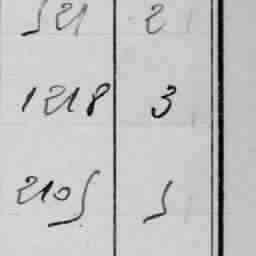 521 2
1218 3
2105 5